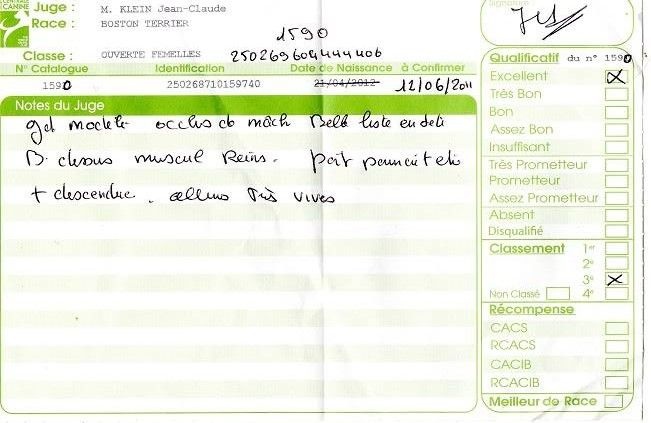 CENTRALE
CANINE
Juge : M. KLEIN Jean-Claude
Race : BOSTON TERRIER
1590
Classe : OUVERTE FEMELLES
N° Catalogue Identification Date de Naissance à Confirmer
1590 250268710159740 21/04/2012 12/06/2011
Notes du Juge
gd modele occlus ch mâch Belle liste en tête
B. dessus muscul Reins. poit pourrait être
+ descendue. allures très vives
Signature
Qualificatif du n° 1590
Excellent
Très Bon
Bon
Assez Bon
Insuffisant
Très Prometteur
Prometteur
Assez Prometteur
Absent
Disqualifié
Classement 1er
2e
3e
Non Classé 4e
Récompense
CACS
RCACS
CACIB
RCACIB
Meilleur de Race